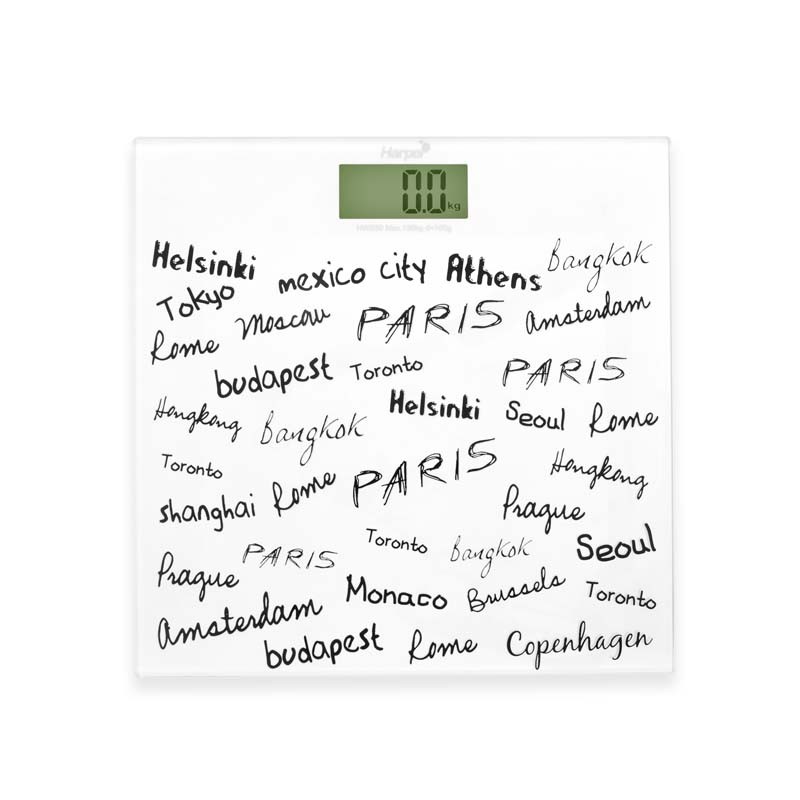 Harper
0.0 kg
Helsinki mexico city Athens Bangkok
Tokyo Moscow PARIS Amsterdam
Rome budapest Toronto PARIS
Hongkong Bangkok Helsinki Seoul Rome
Toronto PARIS Hongkong
shanghai Rome Prague
PARIS Toronto Bangkok Seoul
Prague Monaco Brussels Toronto
Amsterdam budapest Rome Copenhagen